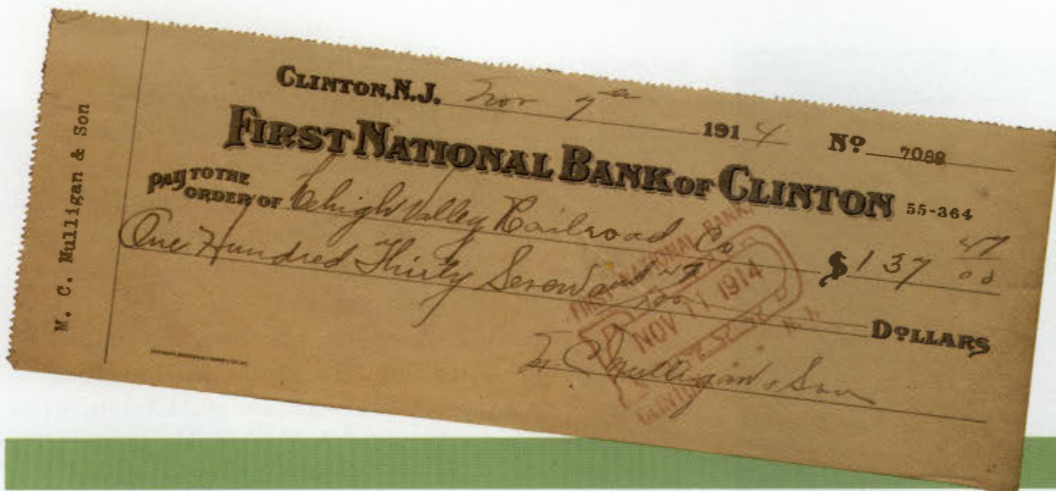 M. C. Mulligan & Son
CLINTON, N.J. Nov 7th 1914 No 7089
FIRST NATIONAL BANK OF CLINTON 55-364
PAY TO THE ORDER OF Lehigh Valley Railroad Co $137 47/00
One Hundred Thirty Seven and 47/100 DOLLARS
FIRST NATIONAL BANK
NOV 11 1914
CLINTON
M C Mulligan & Son